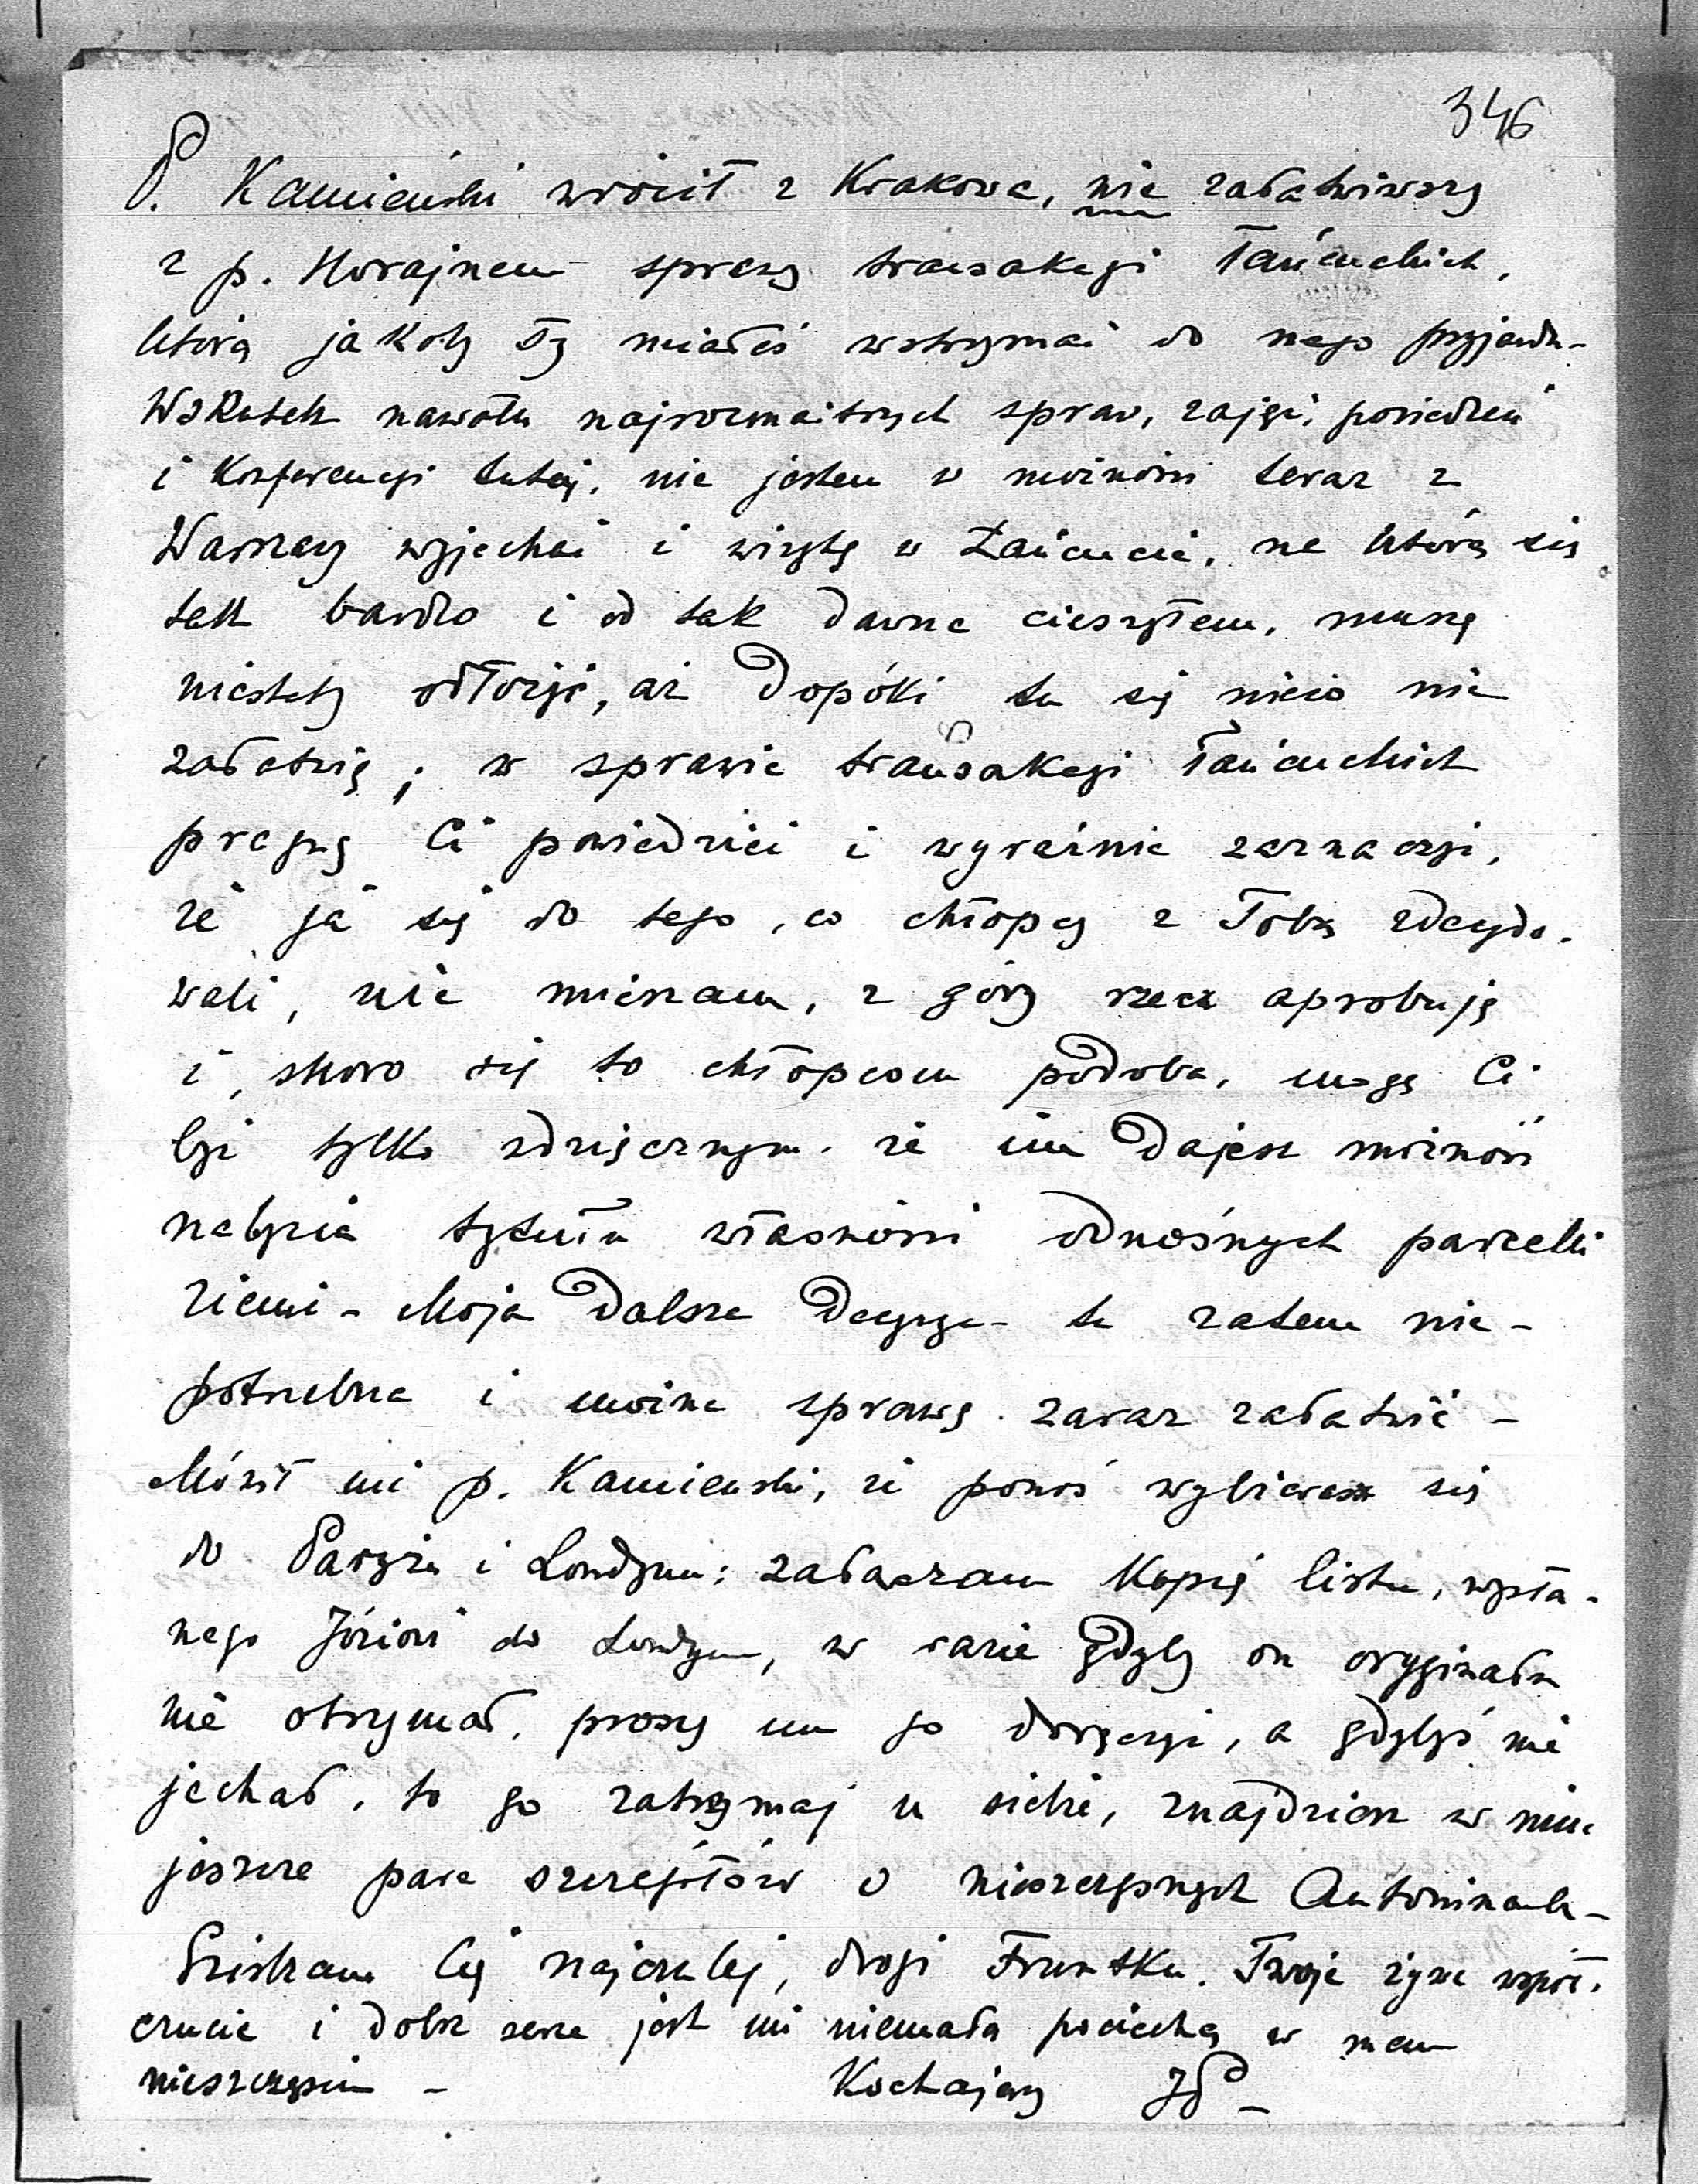 346
P. Kamieński wrócił z Krakowa, nie załatwiwszy
z p. Horajnem sprawy transakcyi łańcuckich,
którą jakoby Ty miałeś wstrzymać do mego przyjazdu -
Wskutek nawału najrozmaitszych spraw, zajęć, posiedzeń
i konferencyi tutaj, nie jestem w możności teraz z
Warszawy wyjechać i wizytę w Łańcucie, na którą się
tak bardzo i od tak dawna cieszyłem, muszę
niestety odłożyć, aż dopóki tu się nieco nie
załatwię; w sprawie transakcyi łańcuckich
pragnę Ci powiedzieć i wyraźnie zaznaczyć,
że ja się do tego, co chłopcy z Tobą zdecydo-
wali, nie mieszam, z góry rzecz aprobuję
i, skoro się to chłopcom podoba, mogę Ci
być tylko wdzięcznym, że im dajesz możność
nabycia tytułu własności odnośnych parcelki
ziemi - Moja dalsza decyzya - tu zatem nie-
potrzebna i można sprawę zaraz załatwić -
Mówił mi p. Kamieński, że ponoś wybierasz się
do Paryża i Londynu: załączam kopię listu, wysła-
nego Józiowi do Londynu, w razie gdyby on oryginału
nie otrzymał, proszę mu go doręczyć, a gdybyś nie
jechał, to go zatrzymaj u siebie, znajdziesz w nim
jeszcze parę szczegółów o nieszczęsnych Antoninach -
Ściskam Cię najczulej, drogi . Twoje żywe współ-
czucie i dobre serce jest mi niemałą pociechą w mem
nieszczęściu - Kochający JP -